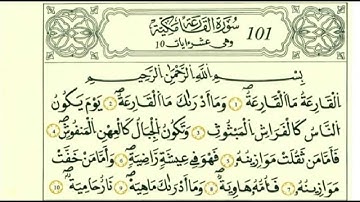 101 سُورَةُ الْقَارِعَةِ مَكِّيَّةٌ
وَهِيَ عَشَرُ اٰيَاتٍ 10
بِسْمِ اللّٰهِ الرَّحْمٰنِ الرَّحِيْمِ
اَلْقَارِعَةُ مَا الْقَارِعَةُ ۝١ وَمَآ اَدْرٰىكَ مَا الْقَارِعَةُ ۝٢ يَوْمَ يَكُوْنُ
النَّاسُ كَالْفَرَاشِ الْمَبْثُوْثِ ۝٣ وَتَكُوْنُ الْجِبَالُ كَالْعِهْنِ الْمَنْفُوْشِ ۝٤
فَاَمَّا مَنْ ثَقُلَتْ مَوَازِيْنُهٗ ۝٥ فَهُوَ فِيْ عِيْشَةٍ رَّاضِيَةٍ ۝٦ وَاَمَّا مَنْ خَفَّتْ
مَوَازِيْنُهٗ ۝٧ فَاُمُّهٗ هَاوِيَةٌ ۝٨ وَمَآ اَدْرٰىكَ مَاهِيَهْ ۝٩ نَارٌ حَامِيَةٌ ۝١٠